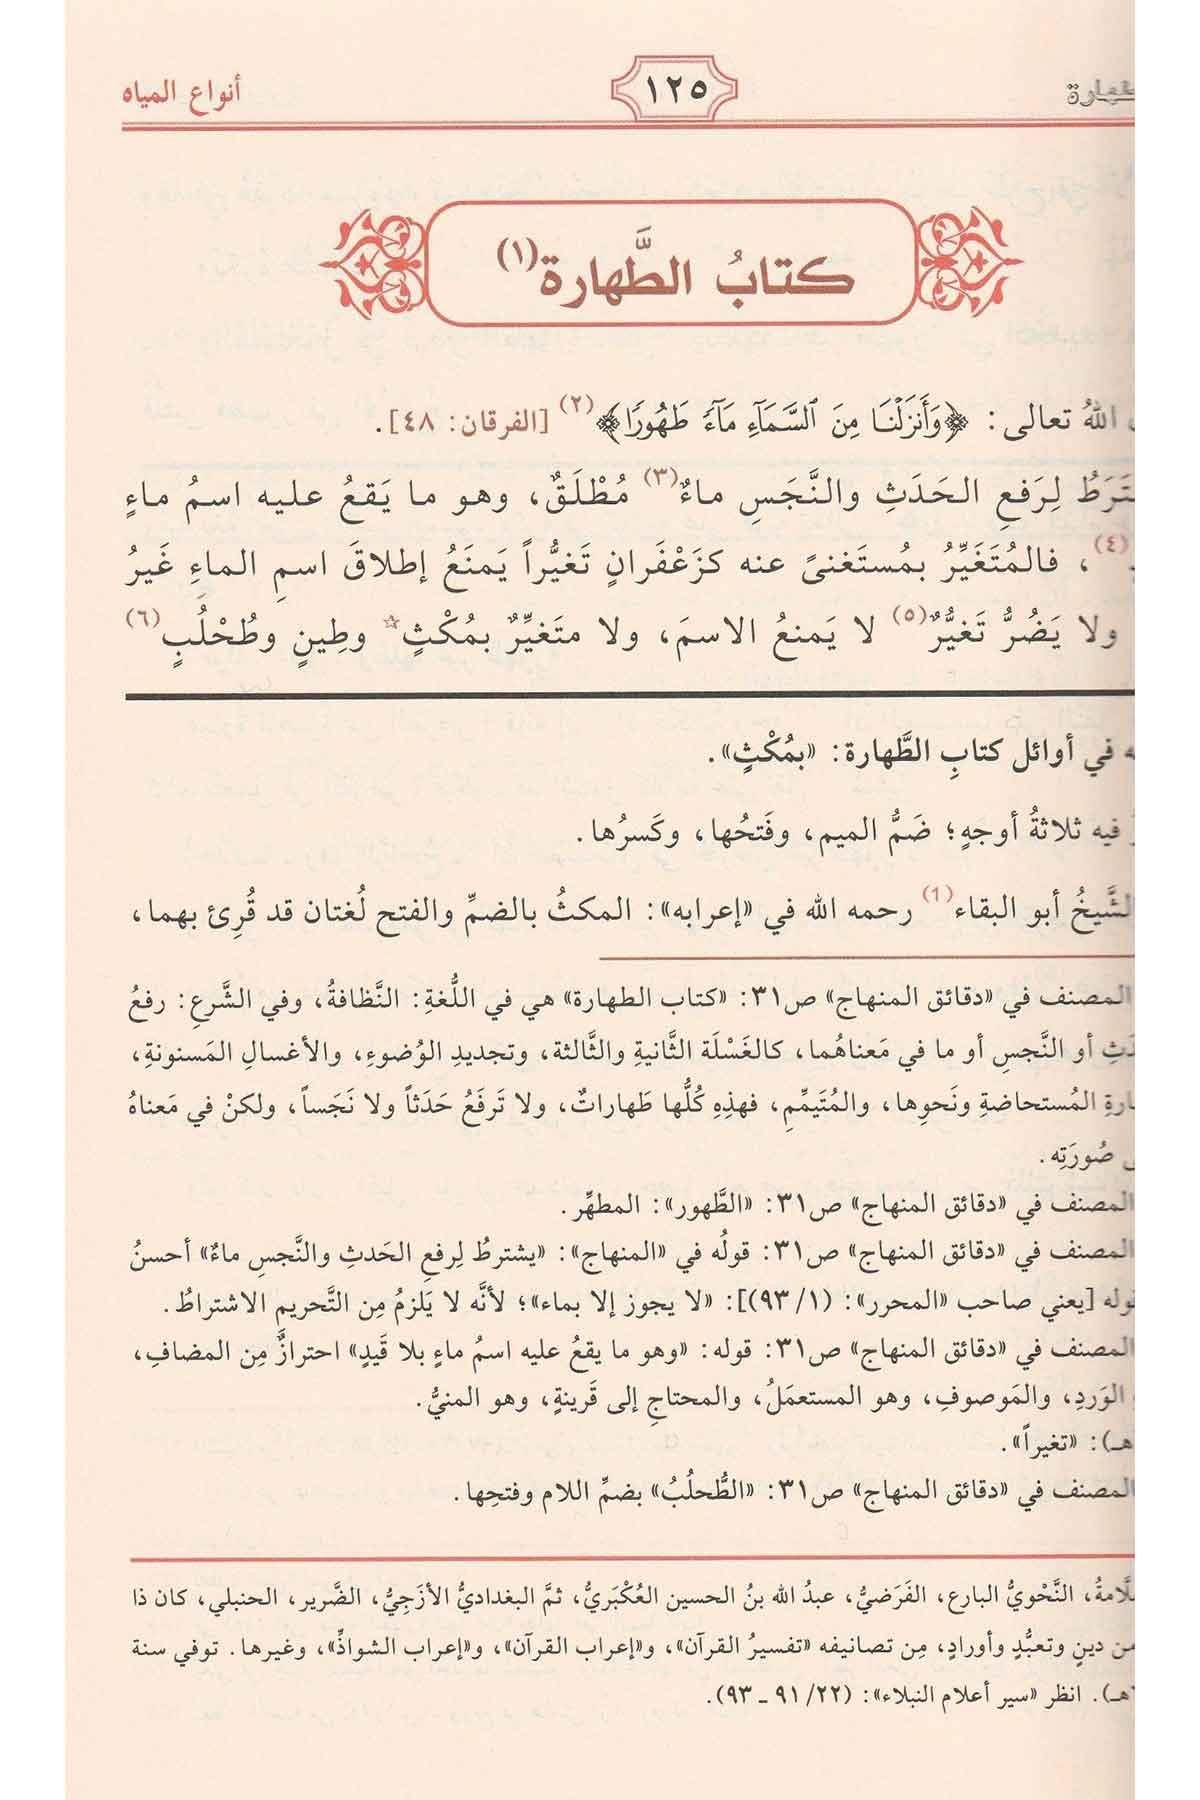 أنواع المياه ١٢٥
كتابُ الطَّهارة(١)
اللهُ تعالى: ﴿وَأَنزَلْنَا مِنَ ٱلسَّمَآءِ مَآءً طَهُورًا﴾(٢) [الفرقان: ٤٨].
لِرَفعِ الحَدَثِ والنَّجَسِ ماءٌ(٣) مُطْلَقٌ، وهو ما يَقعُ عليه اسمُ ماءٍ
(٤)، فالمُتَغَيِّرُ بمُستَغنىً عنه كزَعْفَرانٍ تَغيُّراً يَمنَعُ إطلاقَ اسمِ الماءِ غَيرُ
ولا يَضُرُّ تَغيُّرٌ(٥) لا يَمنعُ الاسمَ، ولا متَغيِّرٌ بمُكْثٍ☆ وطِينٍ وطُحْلُبٍ(٦)
في أوائل كتابِ الطَّهارة: «بمُكْثٍ».
فيه ثلاثةُ أوجهٍ؛ ضَمُّ الميم، وفَتحُها، وكَسرُها.
الشَّيخُ أبو البقاء(١) رحمه الله في «إعرابه»: المكثُ بالضمِّ والفتح لُغتان قد قُرِئ بهما،
المصنف في «دقائق المنهاج» ص٣١: «كتاب الطهارة» هي في اللُّغةِ: النَّظافةُ، وفي الشَّرعِ: رفعُ
أو النَّجسِ أو ما في مَعناهُما، كالغَسْلَة الثَّانيةِ والثَّالثة، وتجديدِ الوُضوءِ، والأغسالِ المَسنونةِ،
المُستحاضةِ ونَحوِها، والمُتَيمِّمِ، فهذِهِ كُلُّها طَهاراتٌ، ولا تَرفَعُ حَدَثاً ولا نَجَساً، ولكنْ في مَعناهُ
صُورَتِه.
المصنف في «دقائق المنهاج» ص٣١: «الطَّهور»: المطهِّر.
المصنف في «دقائق المنهاج» ص٣١: قولُه في «المنهاج»: «يشترطُ لِرفعِ الحَدثِ والنَّجسِ ماءٌ» أحسنُ
قوله [يعني صاحب «المحرر»: (١/ ٩٣)]: «لا يجوز إلا بماء»؛ لأنَّه لا يَلزمُ مِن التَّحريم الاشتراطُ.
المصنف في «دقائق المنهاج» ص٣١: قوله: «وهو ما يقعُ عليه اسمُ ماءٍ بلا قَيدٍ» احترازٌ مِن المضافِ،
الوَردِ، والمَوصوفِ، وهو المستعمَلُ، والمحتاجِ إلى قَرينةٍ، وهو المنيُّ.
هـ): «تغيراً».
المصنف في «دقائق المنهاج» ص٣١: «الطُّحلُبُ» بضمِّ اللام وفتحِها.
النَّحْويُّ البارع، الفَرَضيُّ، عبدُ الله بنُ الحسين العُكْبَريُّ، ثمَّ البغداديُّ الأزَجِيُّ، الضَّرير، الحنبلي، كان ذا
دينٍ وتعبُّدٍ وأورادٍ، مِن تصانيفه «تفسيرُ القرآن»، و«إعراب القرآن»، و«إعراب الشواذِّ»، وغيرها. توفي سنة
هـ). انظر «سير أعلام النبلاء»: (٢٢/ ٩١ ـ ٩٣).